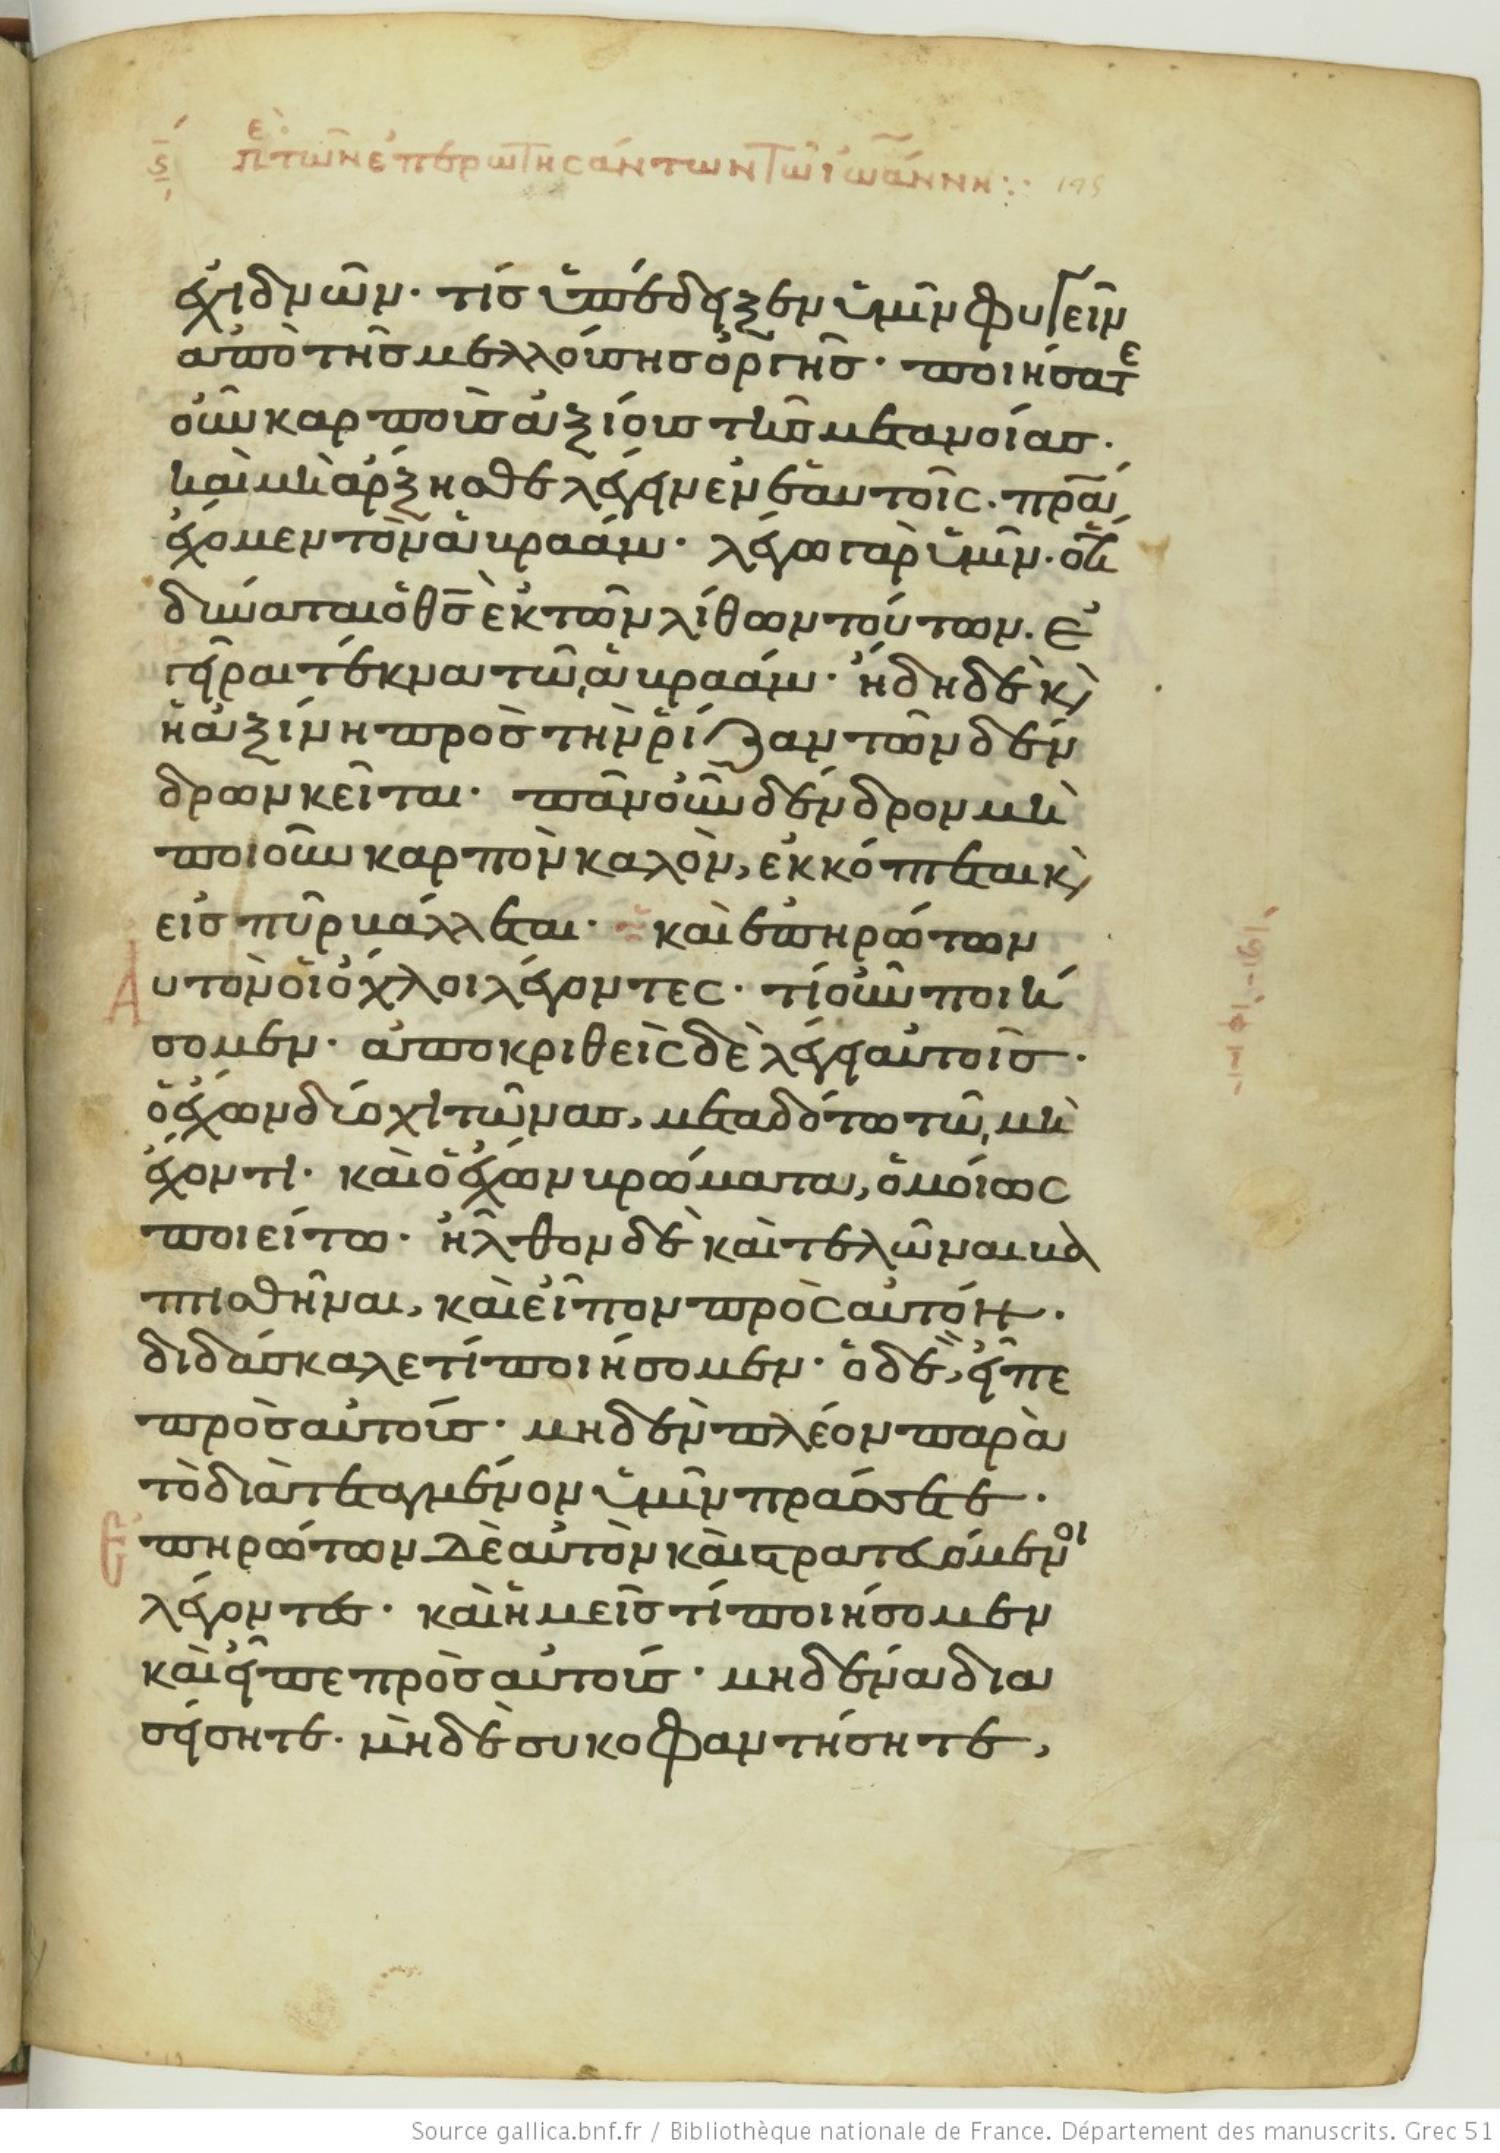 ϛ περὶ τῶν ἐπερωτησάντων τῶ ἰωάννη:· 195
ἐχιδνῶν· τίς ὑπέδειξεν ὑμῖν φυγεῖν
ἀπὸ τῆς μελλούσης ὀργῆς· ποιήσατε
οὖν καρποὺς ἀξίους τῆς μετανοίας·
καὶ μὴ ἄρξησθε λέγειν ἐν ἑαυτοῖς· πρα
ἔχομεν τὸν ἀβραάμ· λέγω γὰρ ὑμῖν· ὅτι
δύναται ὁ θς ἐκ τῶν λίθων τούτων· ἐ
γεῖραι τέκνα τῶ, ἀβραάμ· ἤδη δὲ κ
ἡ ἀξίνη πρὸς τὴν ῥίζαν τῶν δέν
δρων κεῖται· πᾶν οὖν δένδρον μὴ
ποιοῦν καρπὸν καλὸν, ἐκκόπτεται κ
εἰς πῦρ βάλλεται· καὶ ἐπηρώτων
Α υτὸν οἱ ὄχλοι λέγοντες· τί οὖν ποιή
σομεν· ἀποκριθεὶς δὲ λέγει αὐτοῖς·
ὁ ἔχων δύο χιτῶνας, μεταδότω τῶ, μὴ
ἔχοντι· καὶ ὁ ἔχων βρώματα, ὁμοίως
ποιείτω· ἦλθον δὲ καὶ τελῶναι βα
πτισθῆναι, καὶ εἶπον πρὸς αὐτόν·
διδάσκαλε τί ποιήσομεν· ὁ δὲ, εἶπε
πρὸς αὐτούς· μηδὲν πλέον παρὰ
τὸ διατεταγμένον ὑμῖν πράσσετε·
Ε πηρώτων δὲ αὐτὸν καὶ στρατευόμενοι
λέγοντες· καὶ ἡμεῖς τί ποιήσομεν
καὶ εἶπε πρὸς αὐτούς· μηδένα δια
σείσητε· μὴδὲ συκοφαντήσητε,
Source gallica.bnf.fr / Bibliothèque nationale de France. Département des manuscrits. Grec 51